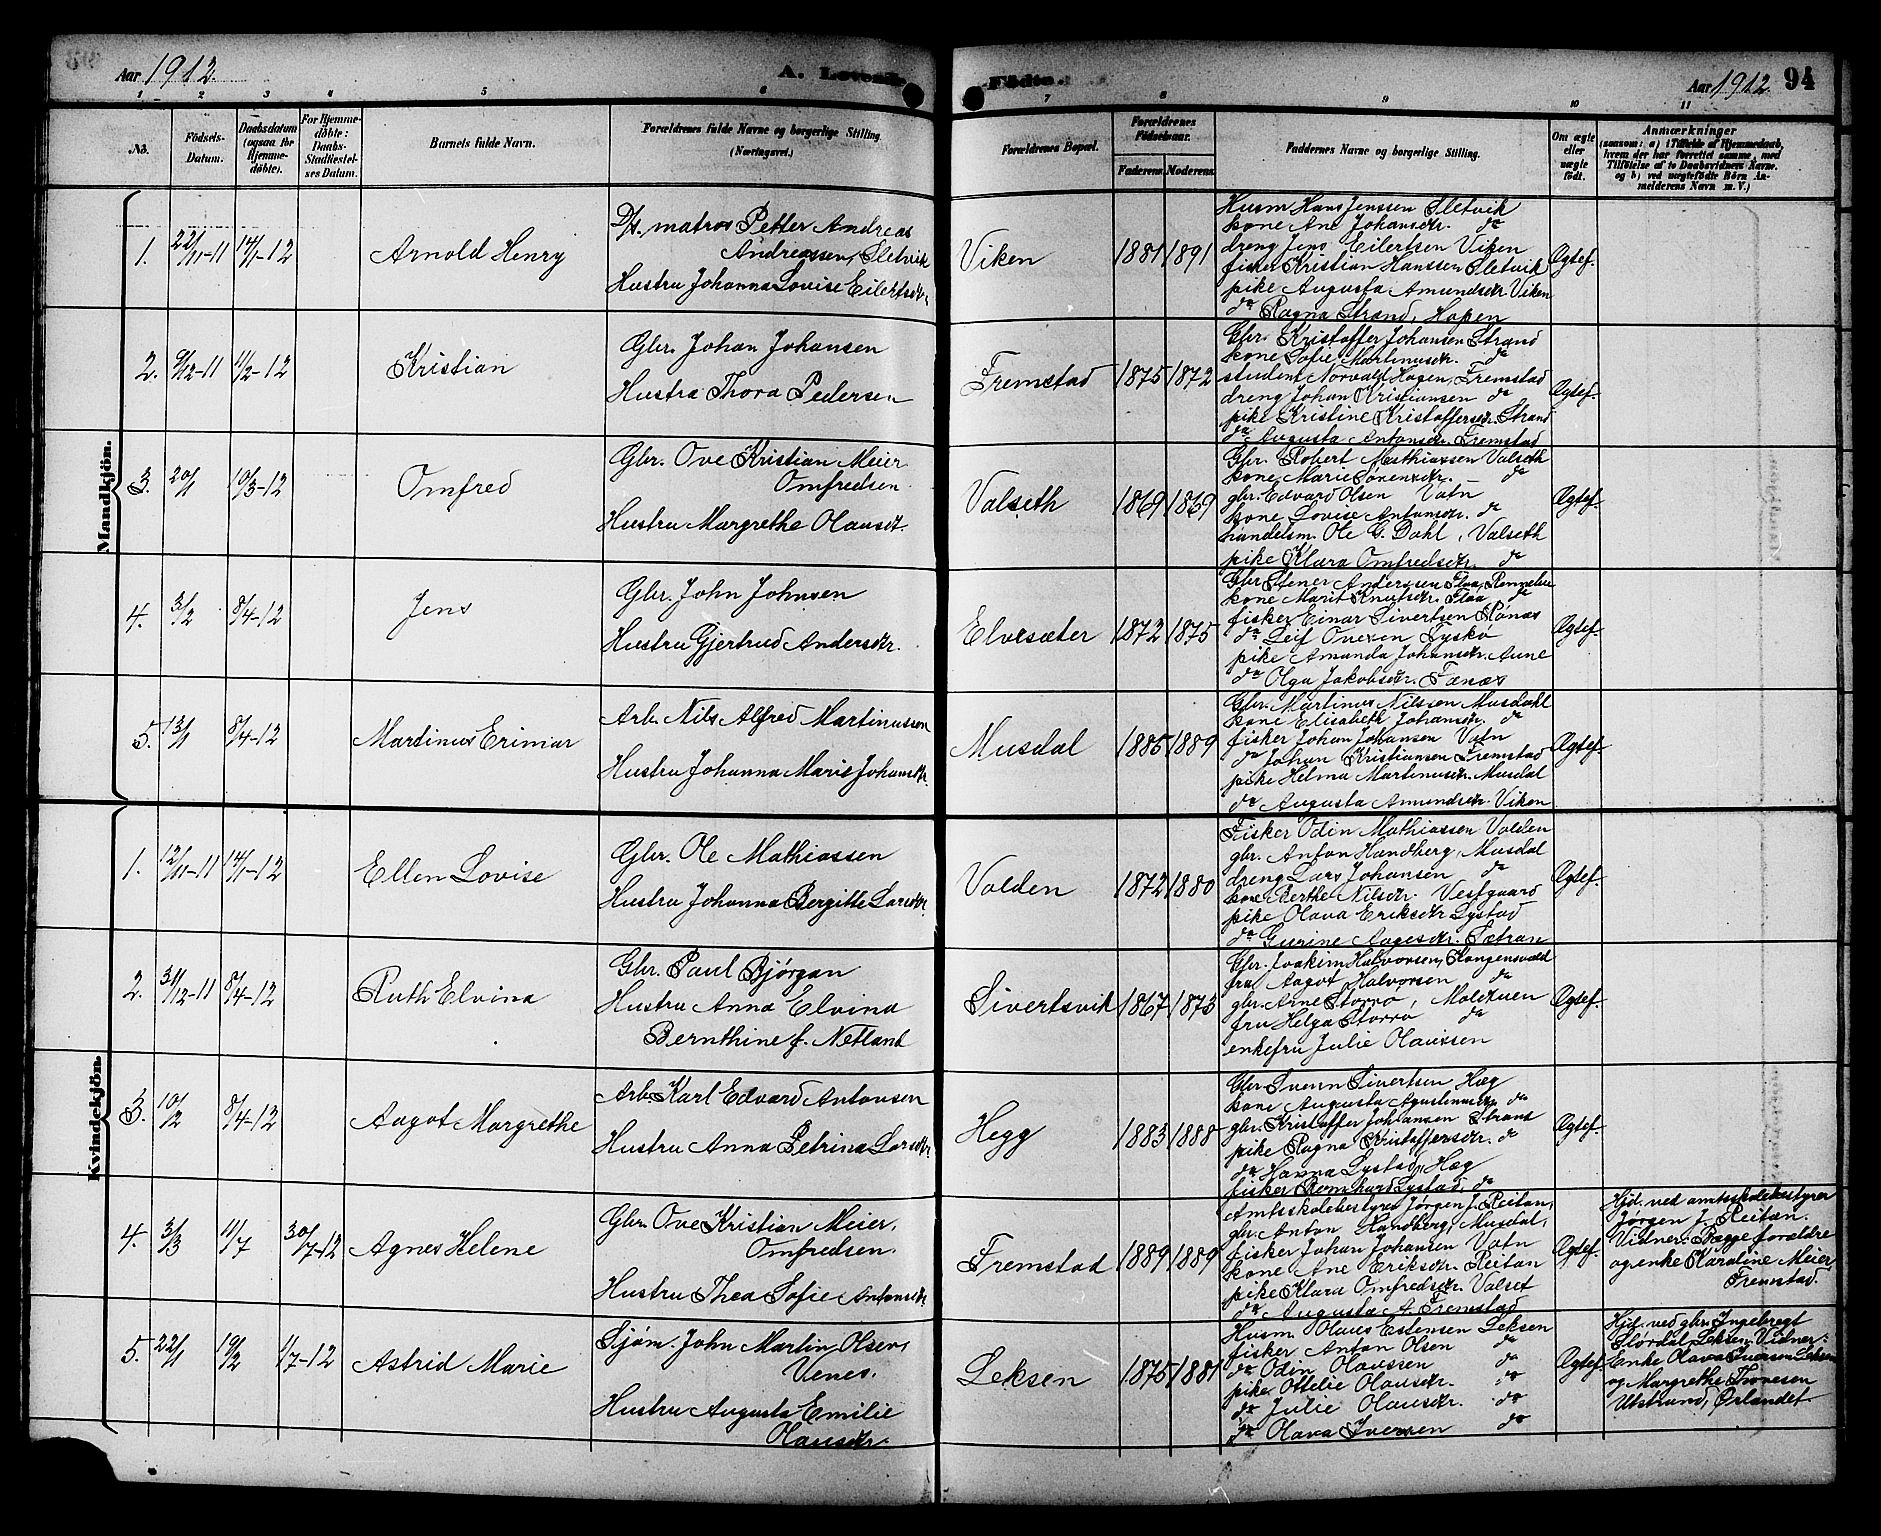 Aar 1912.
A. Levende
Födte.
Aar 1912
94
1 2 3 4 5 6 7 8 9 10 11
No.
Födsels-Datum.
Daabsdatum (ogsaa for Hjemme-döbte).
For Hjemme-döbte: Daabs-Stadfæstelses Datum.
Barnets fulde Navn.
Forældrenes fulde Navne og borgerlige Stilling. (Næringsvei.)
Forældrenes Bopæl.
Forældrenes Födselsaar.
Faderens. Moderens.
Faddernes Navne og borgerlige Stilling.
Om ægte eller uægte födt.
Anmærkninger
(saasom: a) i Tilfælde af Hjemmedaab, hvem der har forrettet samme, med Tilföielse af to Daabsvidners Navne, og b) ved uægtefödte Börn Anmelderens Navn m. V.)
Mandkjön.
1. 22/11-11 14/1-12 Arnold Henry
D/s. matros Petter Andreas
Andreassen, Sletvik
Hustru Johanna Lovise Eilertsdtr.
Viken 1881 1891
Husm Hans Jenssen Sletvik
kone Ane Johansdtr. do
dreng Jens Eilertsen Viken
fisker Kristian Hanssen Sletvik
pike Augusta Amundsdtr Viken
do Ragna Strand, Hopen
Ægtef.
2. 9/12-11 11/2-12 Kristian
Gbr. Johan Johansen
Hustru Thora Pedersen
Fremstad 1875 1872
Gbr. Kristoffer Johansen Strand
kone Sofie Martinusdtr. do
student Norvald Hagen, Fremstad
dreng Johan Kristiansen do
pike Kristine Kristoffersdtr. Strand
do Augusta Antonsdtr. Fremstad
Ægtef.
3. 20/1 10/3-12 Omfred
Gbr. Ove Kristian Meier
Omfredsen
Hustru Margrethe Olausdt.
Valseth 1869 1869
Gbr. Robert Mathiassen Valseth
kone Marie Sörensdtr. do
gbr. Edvard Olsen Vatn
kone Lovise Antonsdtr. do
handelsm. Ole G. Dahl, Valseth
pike Klara Omfredsdtr. do
Ægtef.
4. 3/2 8/4-12 Jens
Gbr. John Johnsen
Hustru Gjertrud Andersdtr.
Elvesæter 1872 1875
Gbr Stener Anderssen Flaa, Rennebu
kone Marit Knutsdtr. Flaa do
fisker Einar Sivertsen Rönæs
do Leif Ovesen Tyskö
pike Amanda Johansdtr. Aune
do Olga Jakobsdtr. Fænæs
Ægtef.
5. 13/1 8/4-12 Martinus Erimar
Arb. Nils Alfred Martinussen
Hustru Johanna Marie Johansdtr.
Musdal 1885 1889
Gbr. Martinus Nilssen Musdahl
kone Elisabeth Johansdtr. do
fisker Johan Johansen Vatn
do Johan Kristiansen Fremstad
pike Helma Martinusdtr. Musdal
do Augusta Amundsdtr. Viken
Ægtef.
Kvindekjön.
1. 12/11-11 14/1-12 Ellen Lovise
Gbr. Ole Mathiassen
Hustru Johanna Bergitte Larsdtr.
Volden 1872 1880
Fisker Odin Mathiassen Volden
gbr. Anton Handberg, Musdal
dreng Lars Johansen do
kone Berthe Nilsdtr. Vestgaard
pike Olava Eriksdtr Lystad
do Gurine Aagesdtr. Sætran
Ægtef.
2. 31/12-11 8/4-12 Ruth Elvina
Gbr. Paul Bjørgan
Hustru Anna Elvina
Bernthine f. Netland
Sivertsvik 1867 1873
Gbr. Joakim Halvorsen, Kongensvold
fru Aagot Halvorsen do
gbr. Arne Storrø, Moldtuen
fru Helga Storrø do
enkefru Julie Olaussen
Ægtef.
3. 10/2 8/4-12 Aagot Margrethe
Arb. Karl Edvard Antonsen
Hustru Anna Petrina Larsdtr.
Hegg 1883 1888
Gbr Svenn Sivertsen Hæg
kone Augusta Agustinusdtr do
gbr. Kristoffer Johansen Strand
pike Ragna Kristoffersdtr. do
do Hanna Lystad, Hæg
fisker Bernhard Lystad, do
Ægtef.
4. 3/3 11/7 30/7-12 Agnes Helene
Gbr. Ove Kristian Meier
Omfredsen
Hustru Thea Sofie Antonsdtr.
Fremstad 1889 1889
Amtsskolebestyrer Jörgen J. Reitan,
gbr. Anton Handberg, Musdal,
fisker Johan Johansen Vatn
kone Ane Eriksdtr. Reitan
pike Klara Omfredsdtr. Valset
do Augusta A. Fremstad
Ægtef.
Hjd. ved amtsskolebestyrer
Jörgen J. Reitan.
Vidner: Begge forældre
og enke Karoline Meier
Fremstad.
5. 22/1 19/2 11/7-12 Astrid Marie
Sjøm. John Martin Olsen,
Venes.
Hustru Augusta Emilie
Olausdtr.
Leksen 1875 1881
Husm Olaus Estensen Leksen
fisker Anton Olsen do
do Odin Olaussen do
pike Ottelie Olausdtr. do
do Julie Olausdtr. do
do Olava Iversen do
Ægtef.
Hjd. ved gbr. Ingebregt
Størdal, Leksen. Vidner:
Enke Olava Iversen Leksen
og Margrethe Thonesen
Utstrand, Ørlandet.